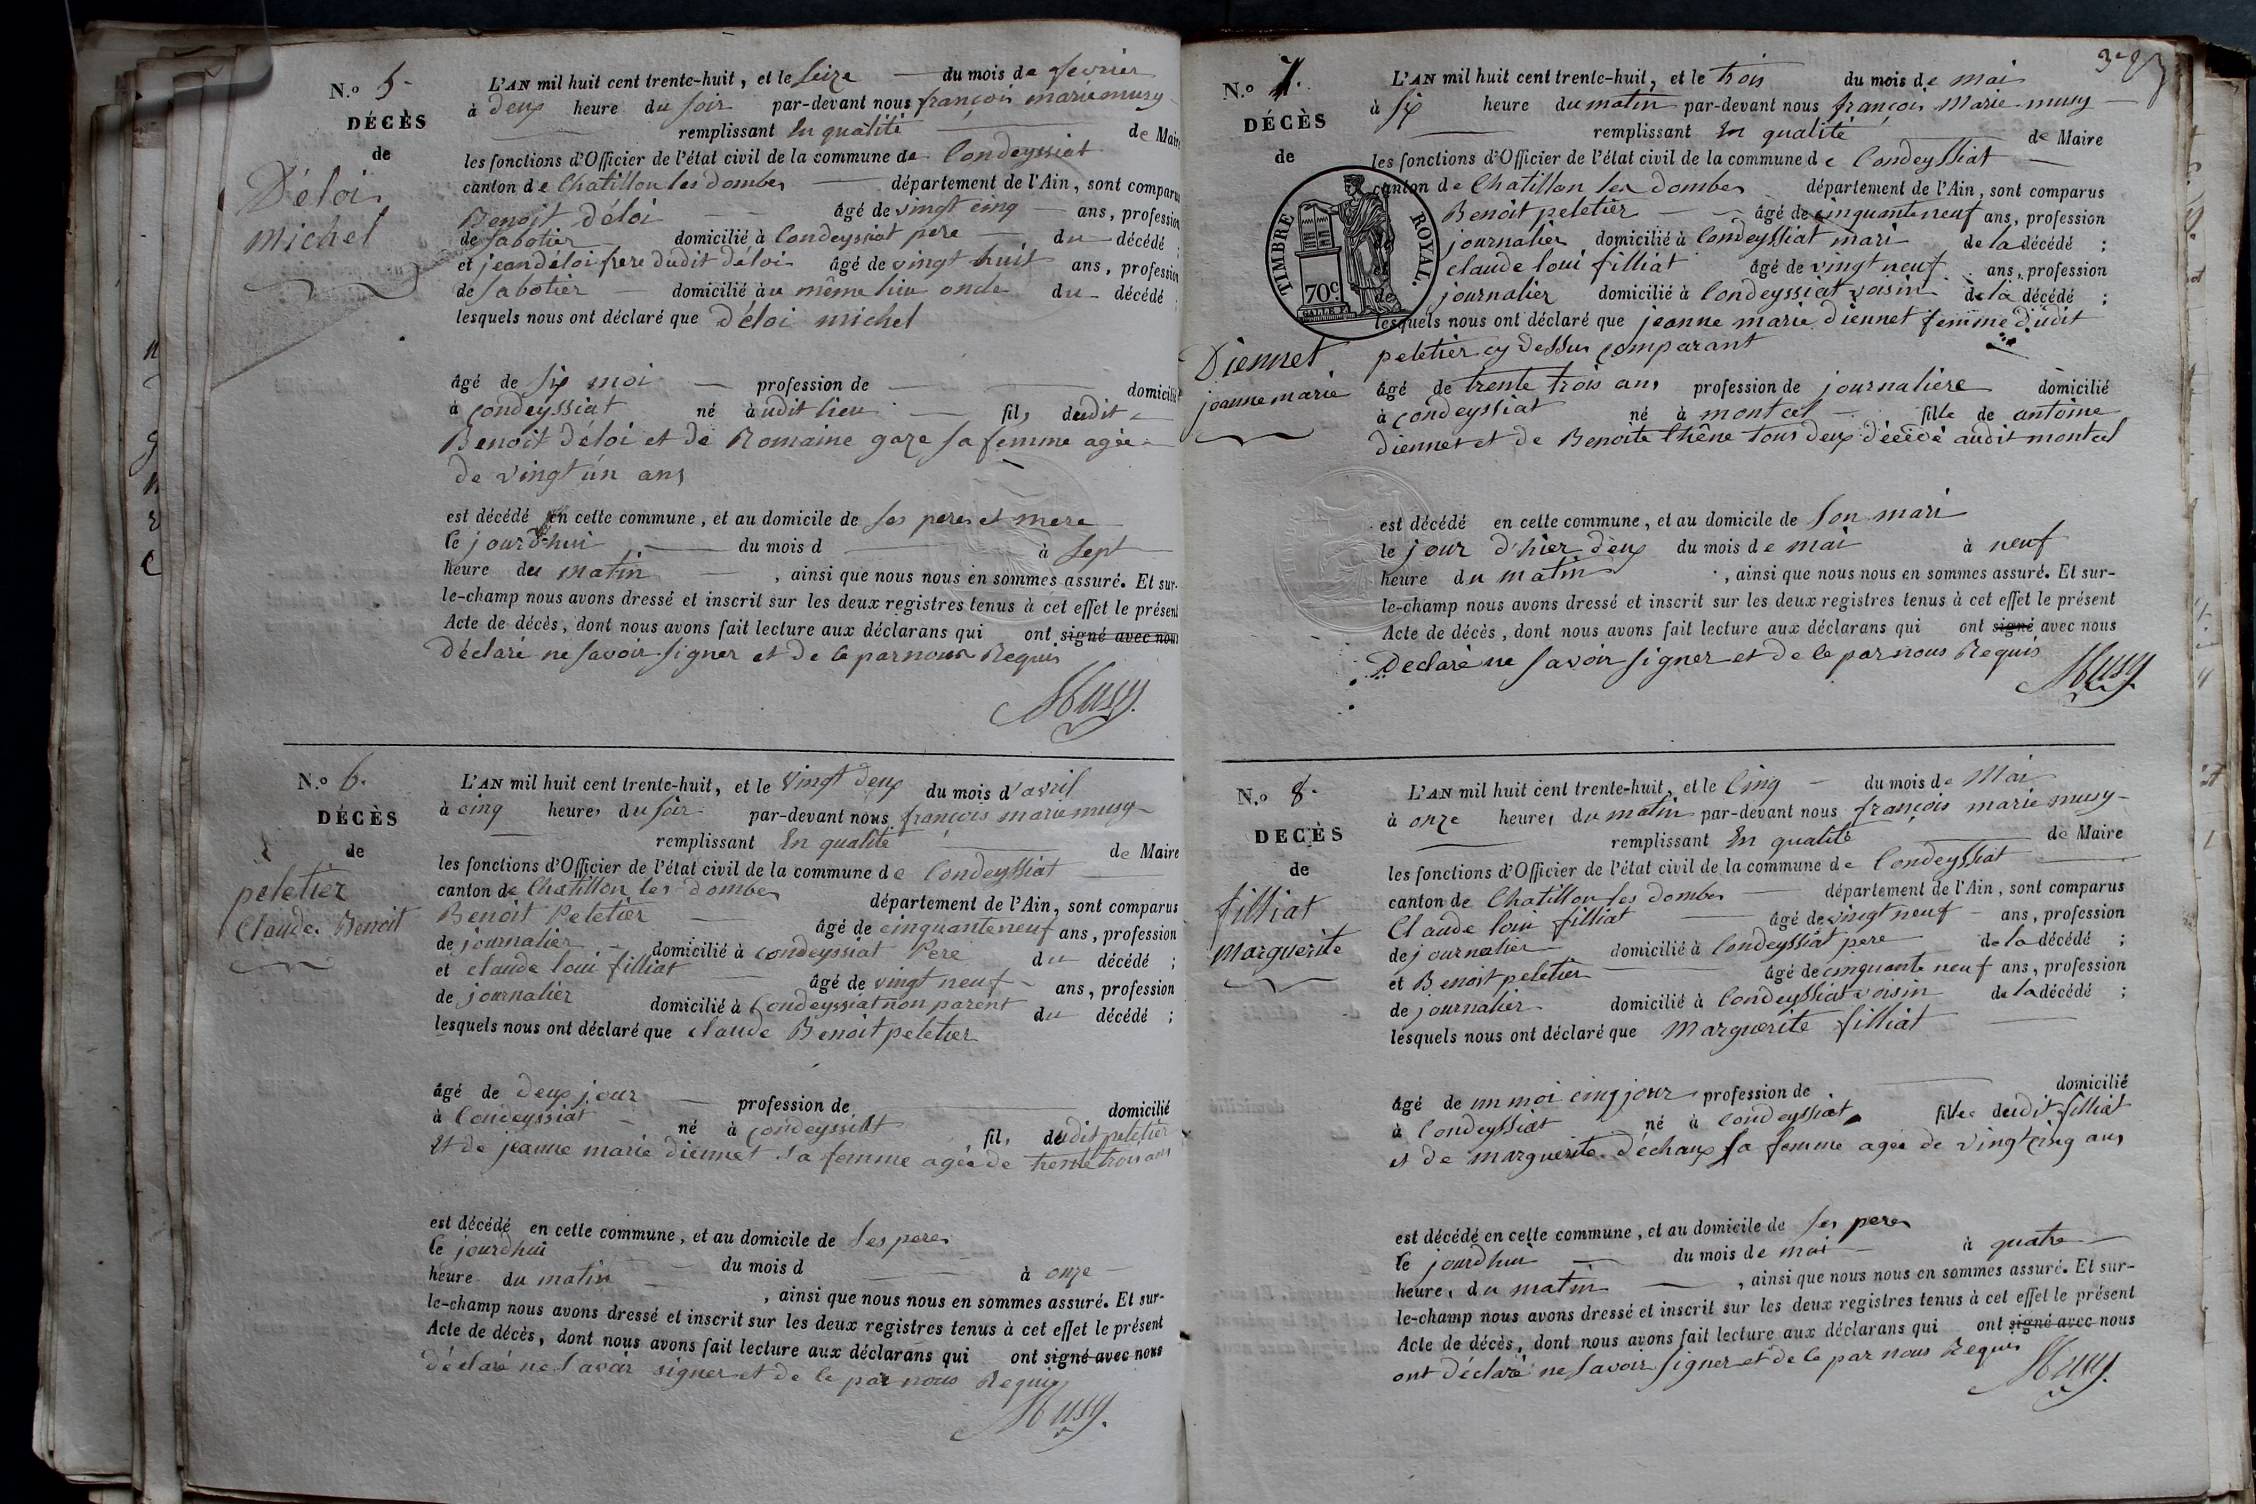 N.o 5.
DÉCÈS
de
Déloi
Michel
L'AN mil huit cent trente-huit, et le seize du mois de fevrier
à deux heure du soir par-devant nous françois marie musy
remplissant En qualité de Maire
les fonctions d'Officier de l'état civil de la commune de Condeyssiat
canton de Chatillon les dombes département de l'Ain, sont comparus
Benoit déloi âgé de vingt cinq ans, profession
de sabotier domicilié à Condeyssiat pere du décédé ;
et jean déloi frere dudit déloi âgé de vingt huit ans, profession
de sabotier domicilié au même lieu oncle du décédé ;
lesquels nous ont déclaré que Déloi michel
âgé de six moi profession de domicilié
à Condeyssiat né à udit lieu fils dudit
Benoit déloi et de Romaine gaze sa femme agée
de vingt un ans
est décédé en cette commune, et au domicile de ses peres et mere
le jourd'hui du mois d à sept
heure du matin , ainsi que nous nous en sommes assuré. Et sur-
le-champ nous avons dressé et inscrit sur les deux registres tenus à cet effet le présent
Acte de décès, dont nous avons fait lecture aux déclarans qui ont signé avec nous
Déclaré ne savoir signer et de ce par nous Requis
Musy
N.o 6.
DÉCÈS
de
peletier
Claude Benoit
L'AN mil huit cent trente-huit, et le vingt deux du mois d'avril
à cinq heures du soir par-devant nous françois marie musy
remplissant En qualité de Maire
les fonctions d'Officier de l'état civil de la commune de Condeyssiat
canton de Chatillon les dombes département de l'Ain, sont comparus
Benoit Peletier âgé de cinquante neuf ans, profession
de journalier domicilié à Condeyssiat Pere du décédé ;
et claude loui filliat âgé de vingt neuf ans, profession
de journalier domicilié à Condeyssiat non parent du décédé ;
lesquels nous ont déclaré que claude Benoit peletier
âgé de deux jour profession de domicilié
à Condeyssiat né à Condeyssiat fils dudit peletier
et de jeanne marie diennet sa femme agée de trente trois ans
est décédé en cette commune, et au domicile de ses peres
le jourdhui du mois d à onze
heure du matin , ainsi que nous nous en sommes assuré. Et sur-
le-champ nous avons dressé et inscrit sur les deux registres tenus à cet effet le présent
Acte de décès, dont nous avons fait lecture aux déclarans qui ont signé avec nous
déclaré ne savoir signer et de ce par nous Requis
Musy.
N.o 7.
DÉCÈS
de
TIMBRE ROYAL.
70c.
Diennet
jeanne marie
L'AN mil huit cent trente-huit, et le trois du mois de mai
à six heure du matin par-devant nous françois Marie musy
remplissant En qualité de Maire
les fonctions d'Officier de l'état civil de la commune de Condeyssiat
canton de Chatillon les dombes département de l'Ain, sont comparus
Benoit peletier âgé de cinquante neuf ans, profession
journalier domicilié à Condeyssiat mari de la décédé ;
et claude loui filliat âgé de vingt neuf ans, profession
de journalier domicilié à Condeyssiat voisin de la décédé ;
lesquels nous ont déclaré que jeanne marie diennet femme dudit
peletier cy dessus comparant
âgé de trente trois ans profession de journaliere domicilié
à Condeyssiat né à montcet fille de antoine
diennet et de Benoite Chêne tous deux décédé audit montcet
est décédé en cette commune, et au domicile de son mari
le jour d'hier deux du mois de mai à neuf
heure du matin , ainsi que nous nous en sommes assuré. Et sur-
le-champ nous avons dressé et inscrit sur les deux registres tenus à cet effet le présent
Acte de décès, dont nous avons fait lecture aux déclarans qui ont signé avec nous
Declaré ne savoir signer et de ce par nous Requis
Musy
N.o 8.
DECÈS
de
filliat
Marguerite
L'AN mil huit cent trente-huit, et le Cinq du mois de Mai
à onze heures du matin par-devant nous françois marie musy
remplissant En qualité de Maire
les fonctions d'Officier de l'état civil de la commune de Condeyssiat
canton de Chatillon les dombes département de l'Ain, sont comparus
Claude loui filliat âgé de vingt neuf ans, profession
de journalier domicilié à Condeyssiat pere de la décédé ;
et Benoit peletier âgé de cinquante neuf ans, profession
de journalier domicilié à Condeyssiat voisin de la décédé ;
lesquels nous ont déclaré que Marguerite filliat
âgé de un moi cinq jours profession de domicilié
à Condeyssiat né à Condeyssiat fille dudit filliat
et de marguerite déchaux sa femme agée de vingt cinq ans
est décédé en cette commune, et au domicile de ses peres
le jourdhui du mois de mai à quatre
heures du matin , ainsi que nous nous en sommes assuré. Et sur-
le-champ nous avons dressé et inscrit sur les deux registres tenus à cet effet le présent
Acte de décès, dont nous avons fait lecture aux déclarans qui ont signé avec nous
ont déclaré ne savoir signer et de ce par nous Requis
Musy.